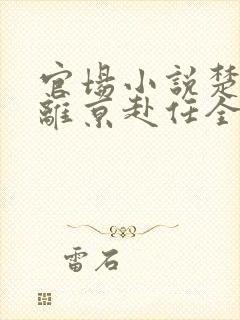 官場小說楚
離京赴任全
雷石